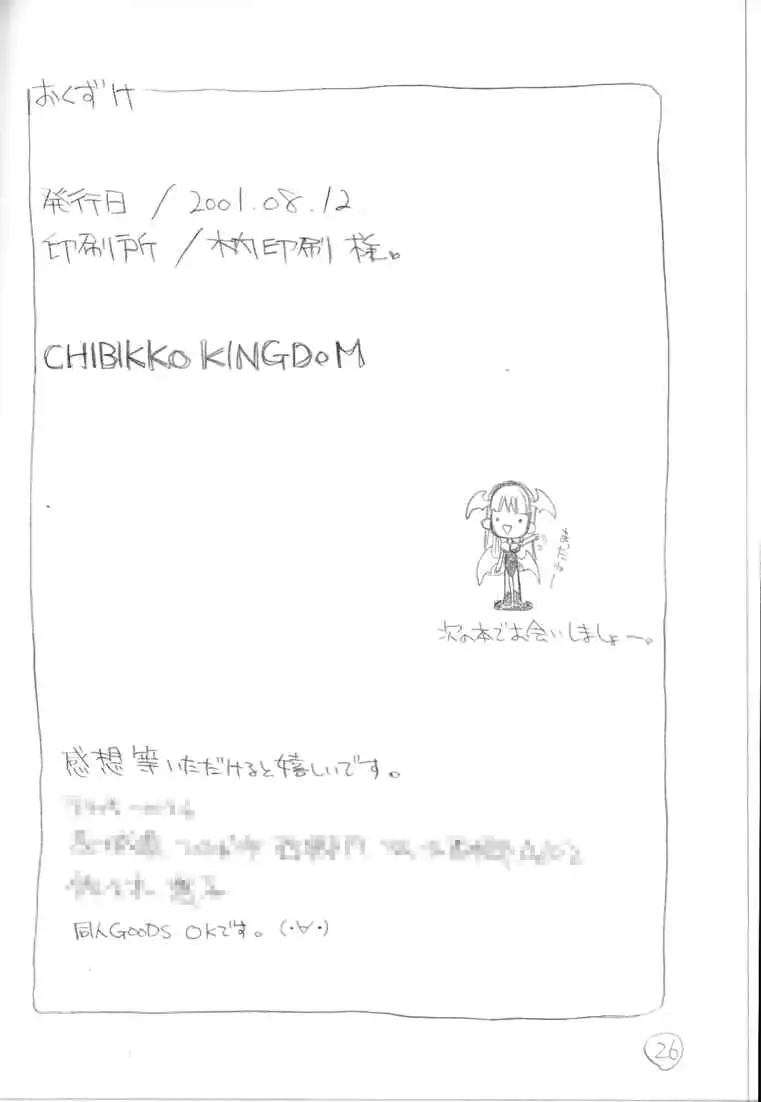 おくずけ
発行日 / 2001.08.12
印刷所 / 印刷 様。
CHIBIKKO KINGDOM
またねー
次の本でお会いしましょー。
感想等いただけると嬉しいです。
同人GOODS OKです。(・∀・)
26